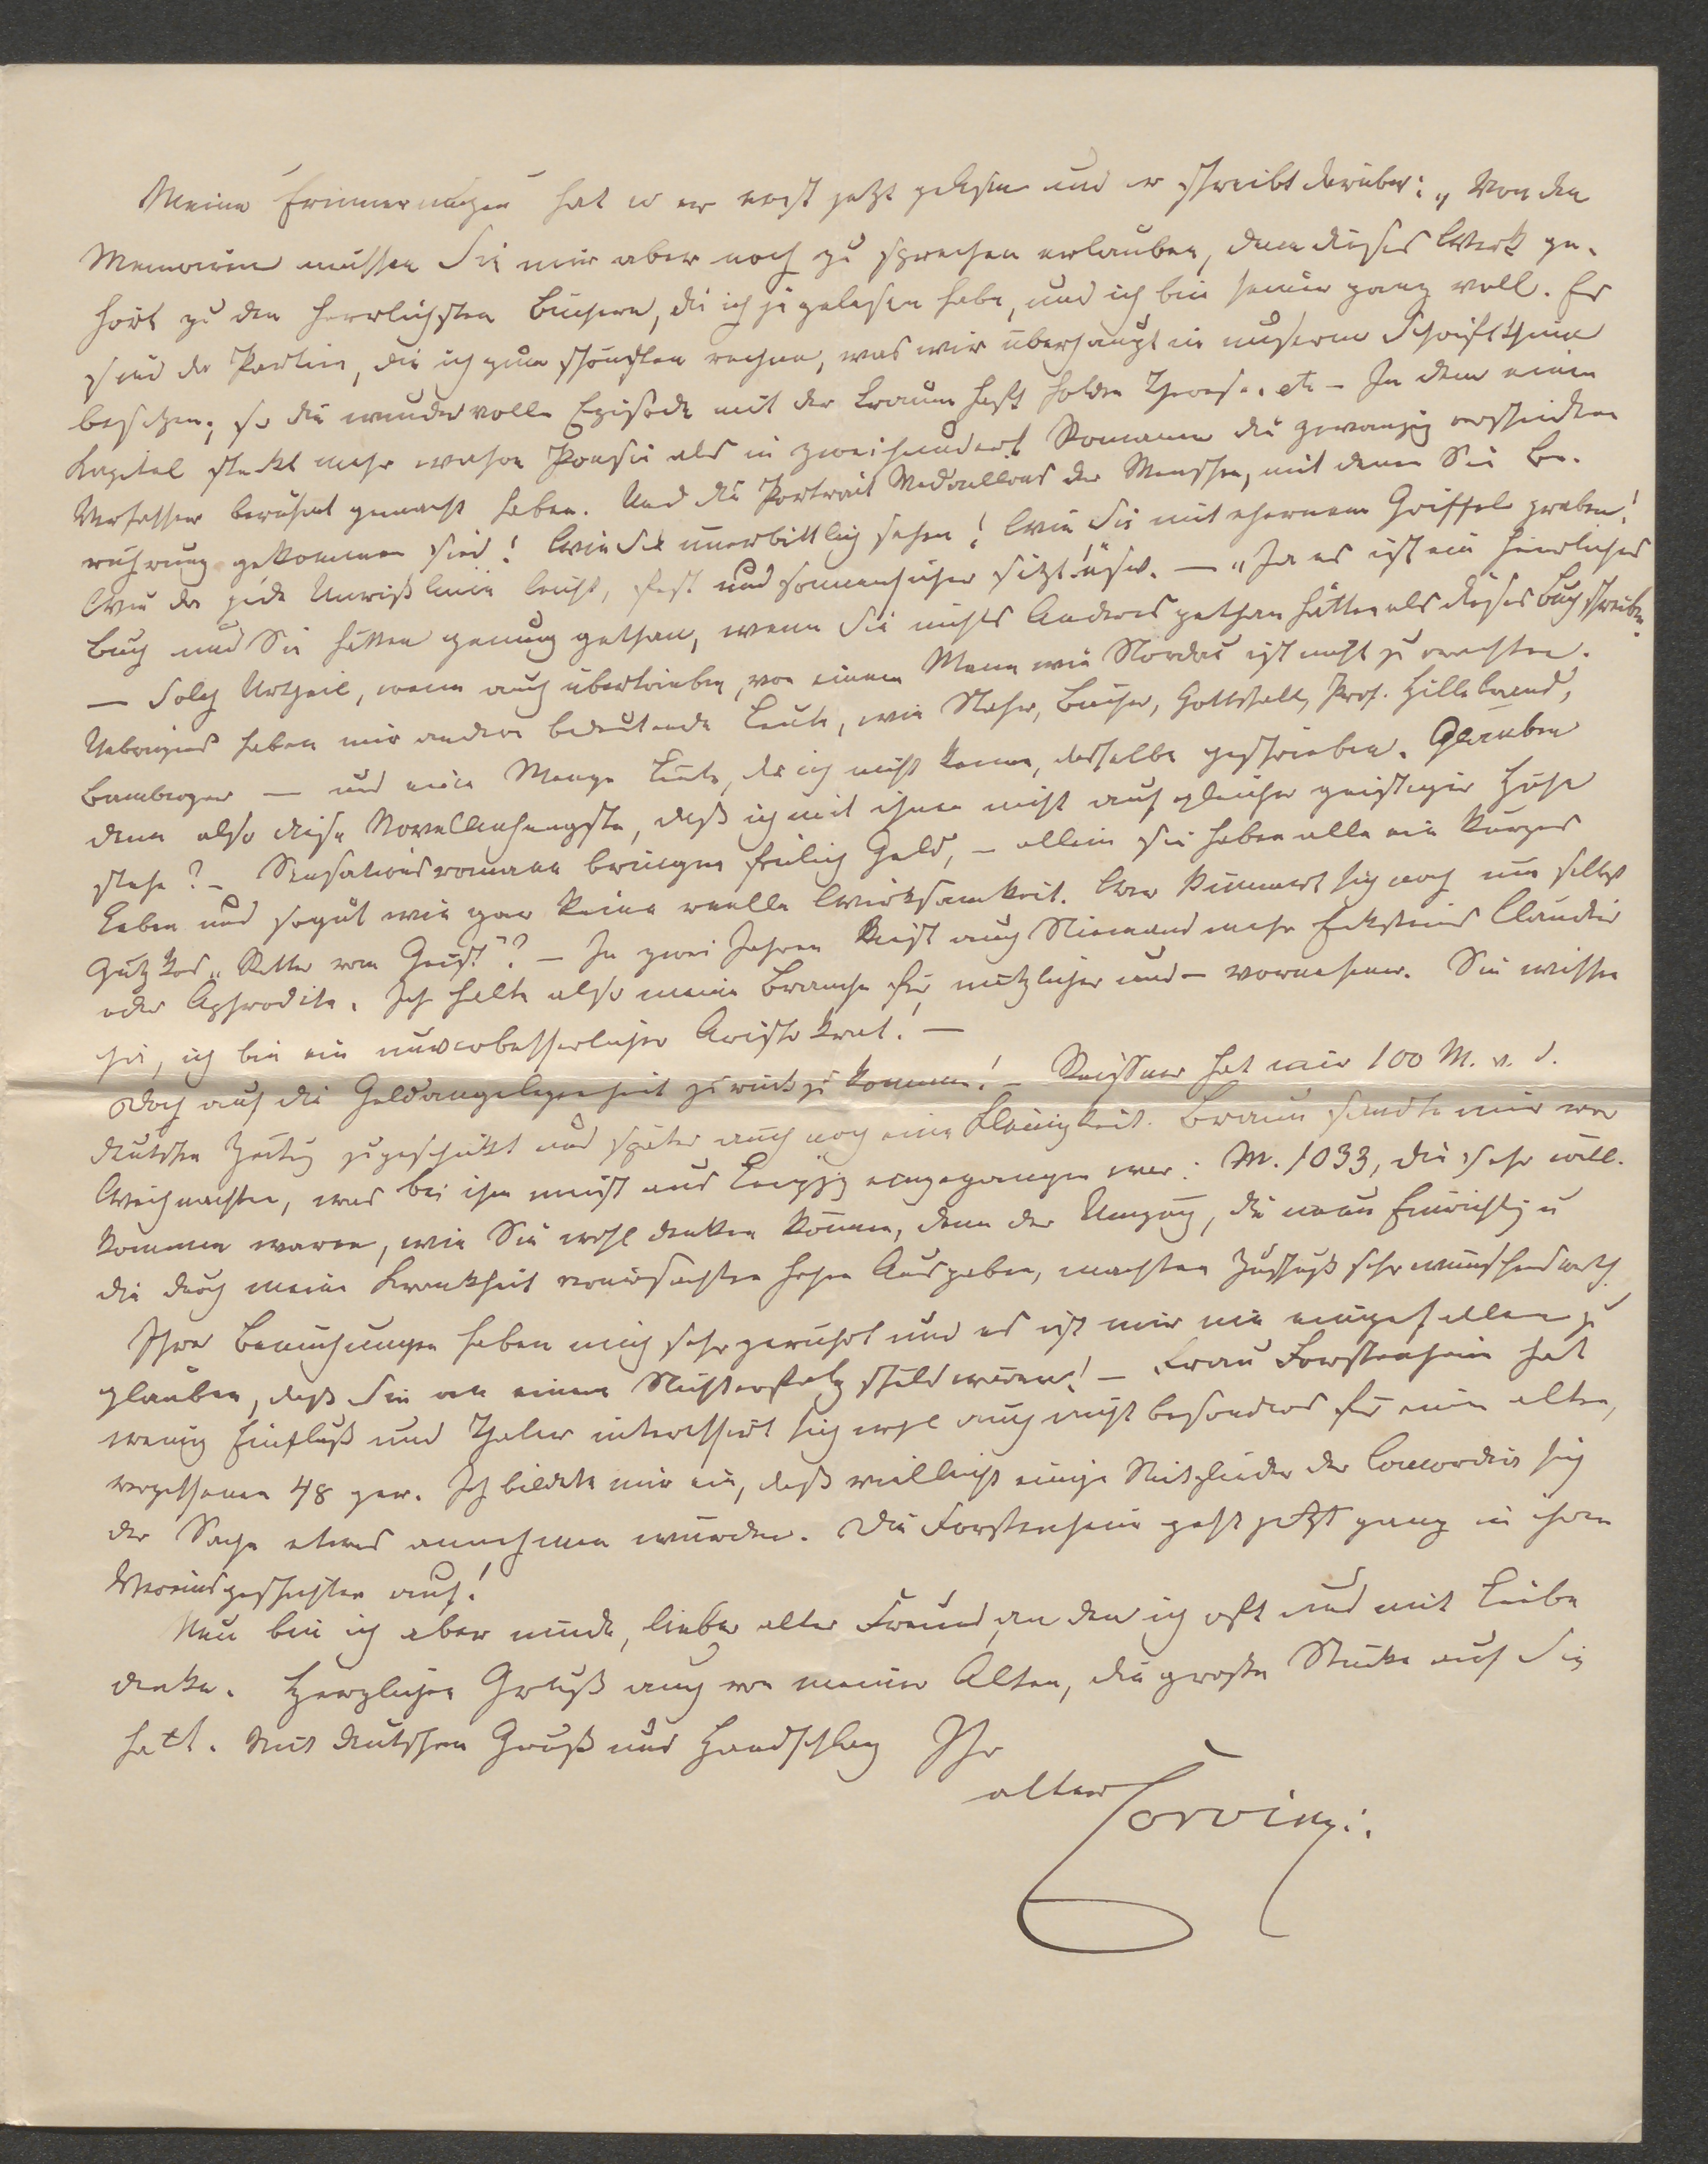 Meine Erinnerungen hat er erst jetzt gelesen und er schreibt darüber: „Von den
Memoiren müssen Sie mir aber noch zu sprechen erlauben, denn dieses Werk ge-
hört zu den herrlichsten Büchern, die ich je gelesen habe, und ich bin seiner ganz voll. Es
sind da Partien, die ich zum schönsten rechne, was wir überhaupt in unserem Schriftthum
besitzen; so die wundervolle Episode mit der traumhaft holden Therese. etc – In dem einen
Kapitel steckt mehr wahre Poesie als in zweihundert Romanen die zwanzig
Verfasser berühmt gemacht haben. Und die Portrait Medaillons der Menschen, mit denen Sie Be-
rührung gekommen sind! Wie Sie unerbittlich sehen! Wie Sie mit ehernem Griffel graben!
Wie da jede Umrißlinie leicht, fest und sonnensicher sitzt! usw. — „Ja es ist ein herrliches
Buch und Sie hätten genung gethan, wenn Sie nichts Anderes gethan hätten als dieses Buch schreiben.
— Solch Urtheil, wenn auch übertrieben, von einem Mann wie Nordau ist nicht zu verachten.
Uebrigens haben mir andere bedeutende Leute, wie Stahr, Bucher, Gottschall, Prof. Hillebrand,
Bamberger — und eine Menge Leute, die ich nicht kenne, dasselbe geschrieben. Glauben
denn also diese Novellenhengste, daß ich mit ihnen nicht auf gleicher geistiger Höhe
stehe? – Sensationsromane bringen freilich Geld, – allein sie haben alle ein kurzes
Leben und sogut wie gar keine reelle Wirksamkeit. Wer kümmert sich noch um selbst
Gutzkos „Ritter vom Geist"? – In zwei Jahren liest auch Niemand mehr Ecksteins Claudier
oder Aphrodite. Ich halte also meine Branche für nützlicher und – vornehmer. Sie wissen
ja, ich bin ein unverbesserlicher Aristokrat! —
Doch auf die Geldangelegenheit zurückzukommen! – Reissner hat mir 100 M. v. d.
deutschen Zeitung zugeschickt und später auch noch eine Kleinigkeit. Braun sandte mir vor
Weihnachten, was bei ihm meist aus Leipzig eingegangen war: M. 1033, die sehr will-
kommen waren, wie Sie wohl denken können, denn der Umzug, die neue Einrichtg u
die durch meine Krankheit verursachten hohen Ausgaben, machten Zuschuß sehr wünschenswerth.
Ihre Bemühungen haben mich sehr gerührt und es ist mir nie eingefallen zu
glauben, daß Sie an einem Nichterfolg schuld wären! – Frau Forstenheim hat
wenig Einfluß und Thaler interessirt sich wohl auch nicht besonders für einen alten,
vergessenen 48ger. Ich bildete mir ein, daß vielleicht einige Mitglieder der Concordia sich
der Sache etwas annehmen würden. Die Forstenheim geht jetzt ganz in ihren
Vereinsgeschäften auf!
Nun bin ich aber müde, lieber alter Freund, an den ich oft und mit Liebe
denke. Herzlichen Gruß auch von meiner Alten, die große Stücke auf Sie
hält. Mit deutschem Gruß und Handschlag Ihr
alter Corvin.